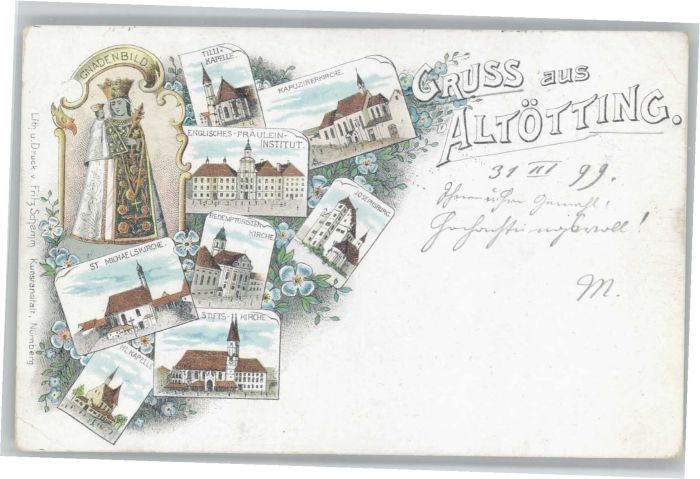 GNADENBILD
TILLI-
KAPELLE.
KAPUZINERKIRCHE.
GRUSS aus
ALTÖTTING.
ENGLISCHES-FRÄULEIN-
INSTITUT.
REDEMPTORISTEN
KIRCHE
JOSEFSBURG
ST. MICHAELSKIRCHE.
STIFTS-KIRCHE
HL. KAPELLE
Lith. u. Druck v. Fritz Schemm, Kunstanstalt, Nürnberg
31 III 99.
Hochachtungsvoll!
M.